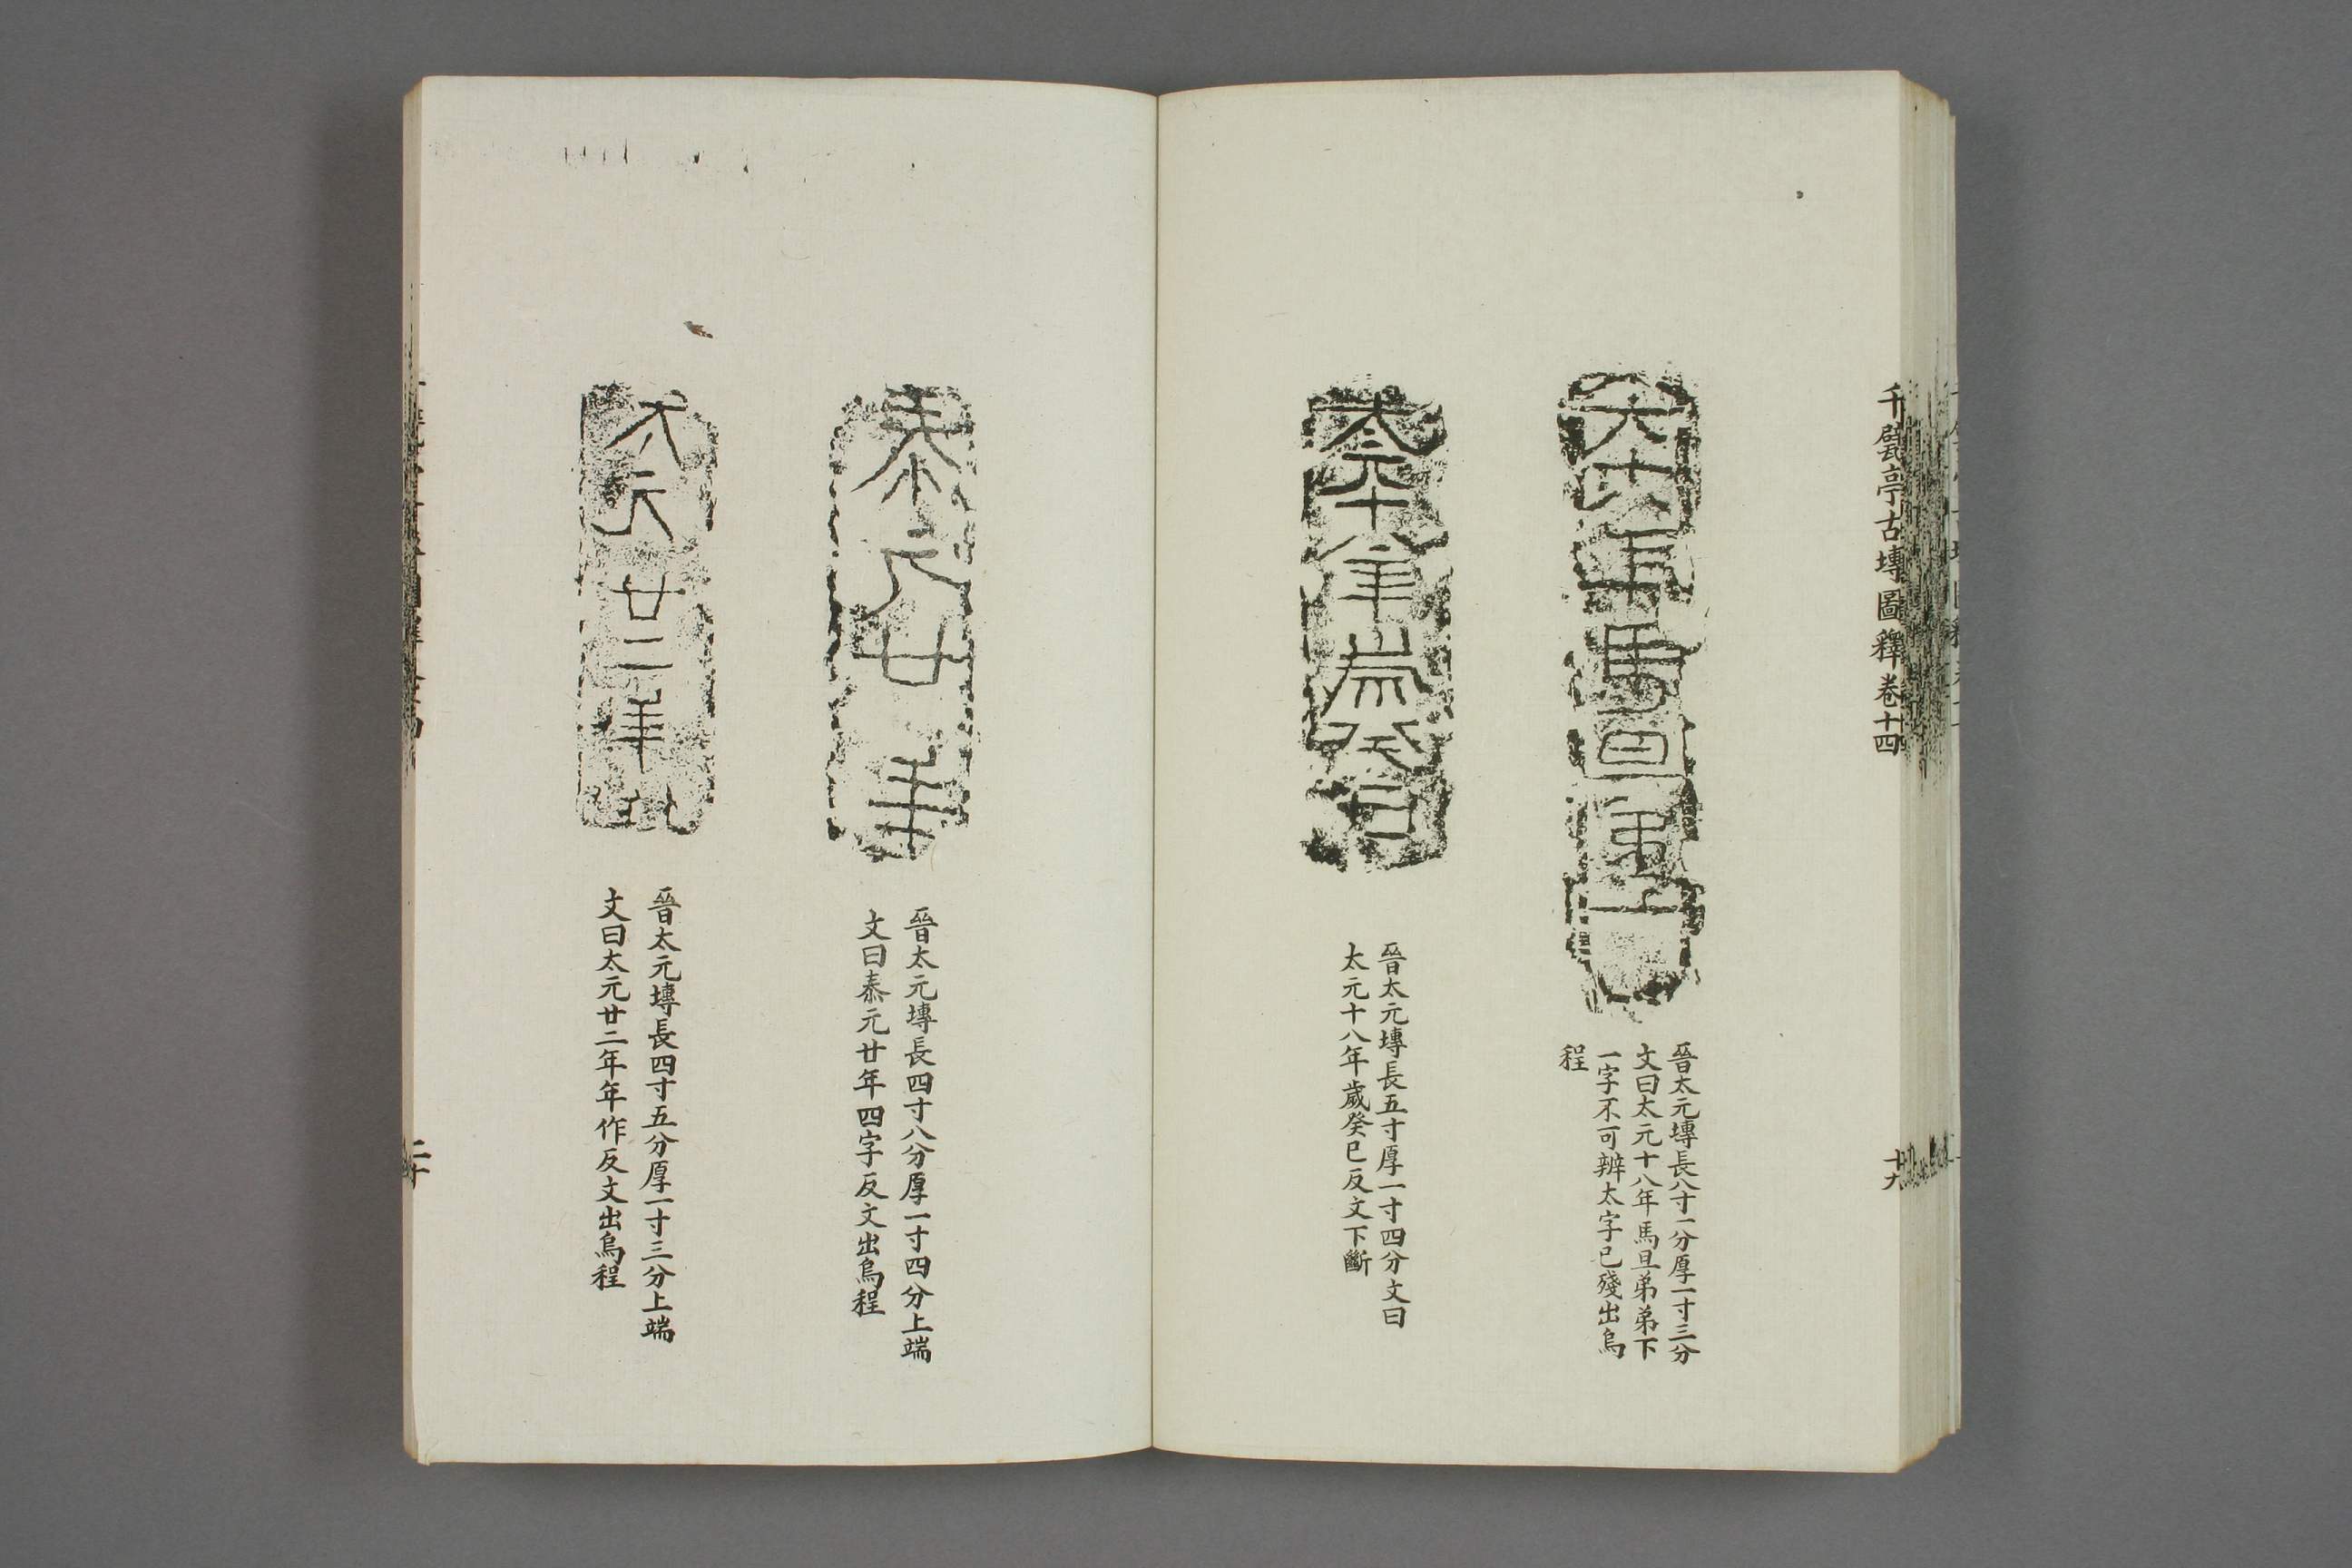 千甓亭古塼圖釋 卷十四
十九
晉太元塼長八寸一分厚一寸三分
文曰太元十八年馬旦弟弟下
一字不可辨太字已殘出烏
程
太元十八年歲癸巳
晉太元塼長五寸厚一寸四分文曰
太元十八年歲癸巳反文下斷
泰元廿年
晉太元塼長四寸八分厚一寸四分上端
文曰泰元廿年四字反文出烏程
太元廿二年
晉太元塼長四寸五分厚一寸三分上端
文曰太元廿二年年作反文出烏程
二十